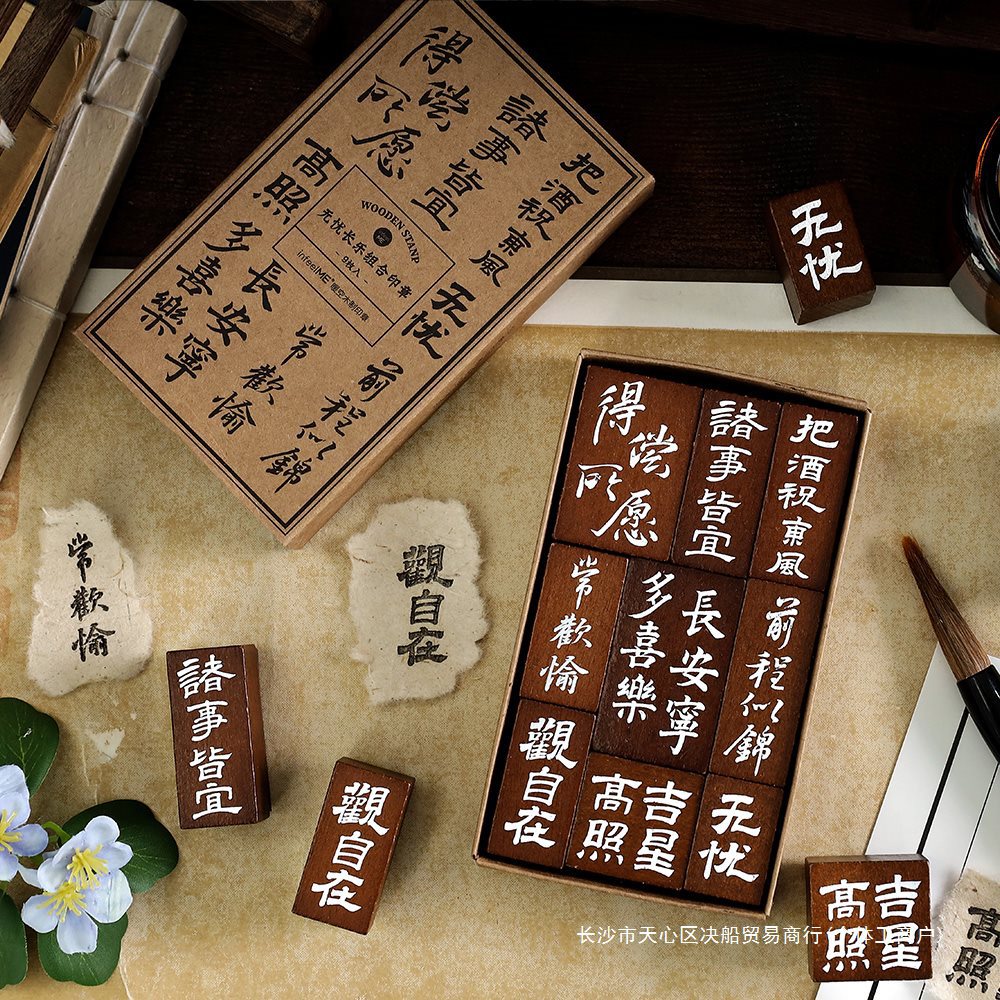 得偿
所愿
諸事皆宜
把酒祝東風
高照
WOODEN STANP
无忧长乐组合印章
- 9枚入 -
infeelME
无忧
多喜樂
長安寧
常歡愉
前程似錦
无忧
得偿
所愿
諸事皆宜
把酒祝東風
常歡愉
多喜樂
長安寧
前程似錦
觀自在
吉星
高照
无忧
常歡愉
觀自在
諸事皆宜
觀自在
吉星
高照
高照
长沙市天心区决船贸易商行